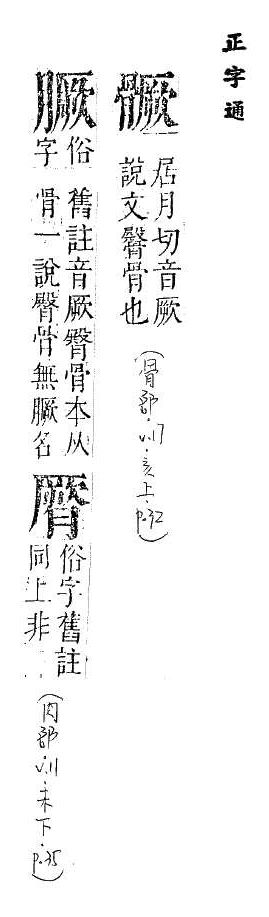 正字通
𩪗
居月切音厥
説文臀骨也
(骨部·v.17·亥上·p.32)
俗
字
舊註音厥臀骨本从
骨一說臀骨無名
俗字舊註
同上非
(肉部·v.11·未下·p.35)